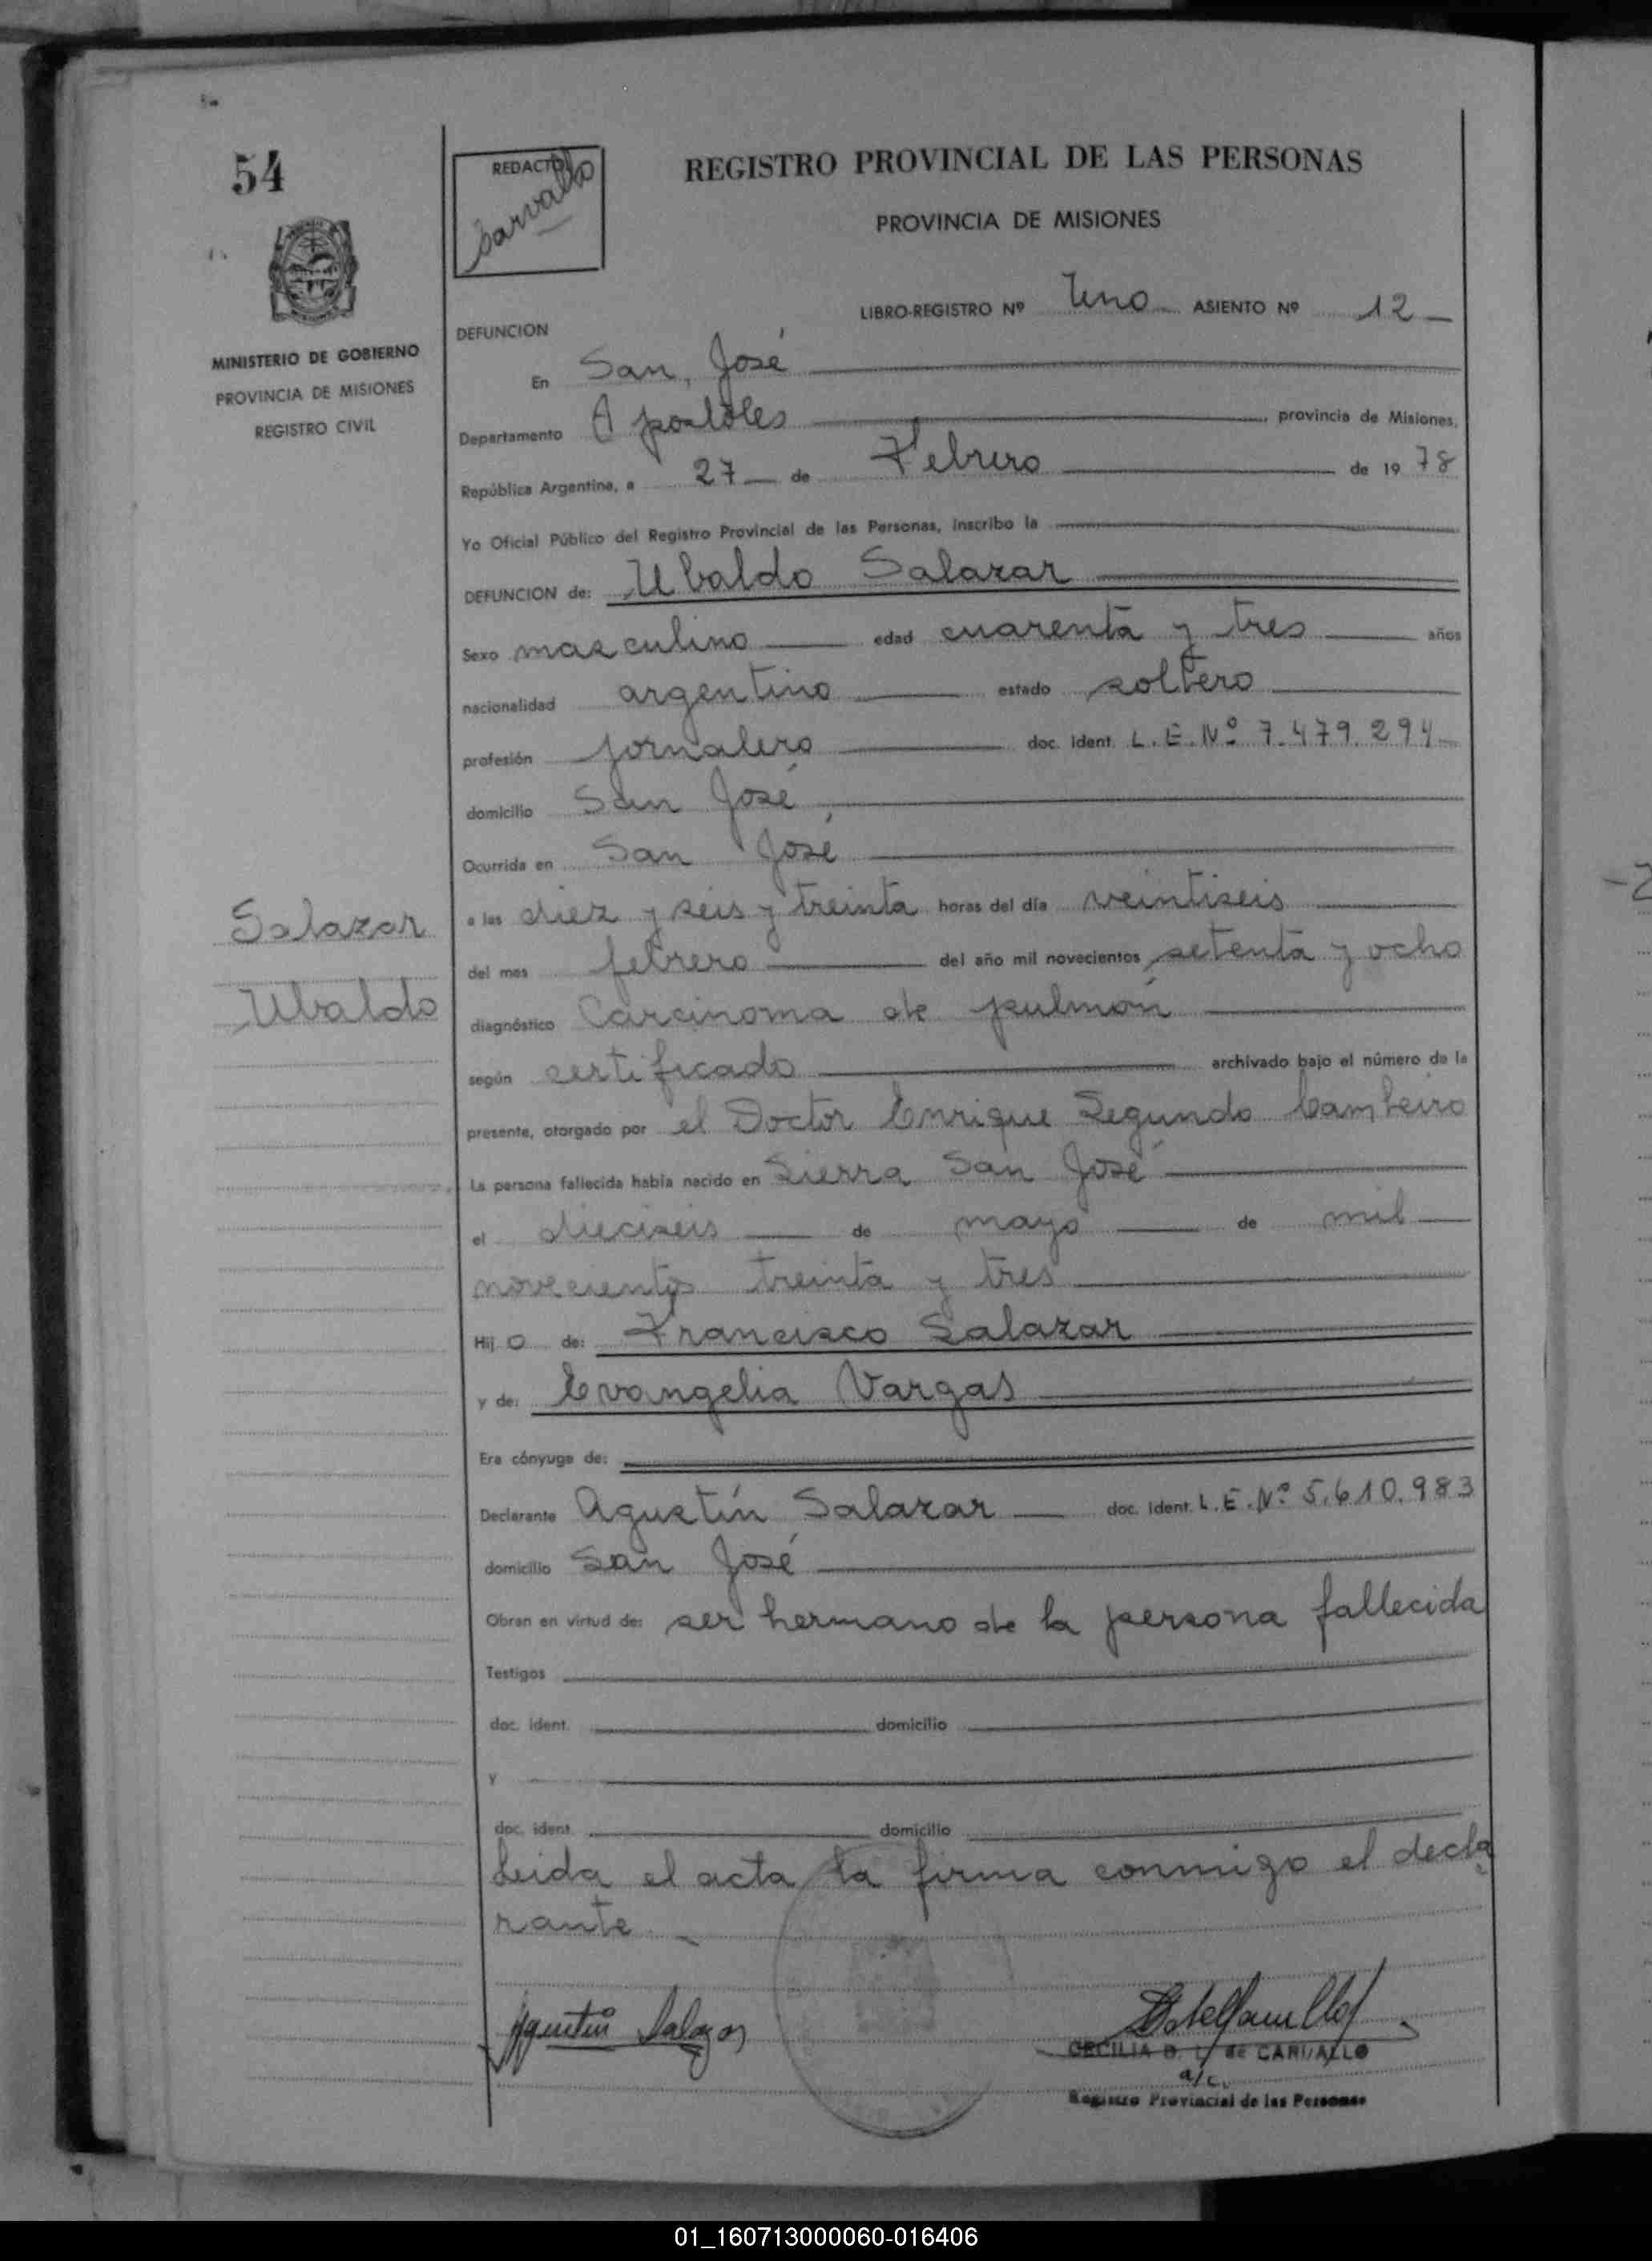 54
REDACTO
Carvallo
REGISTRO PROVINCIAL DE LAS PERSONAS
PROVINCIA DE MISIONES
MINISTERIO DE GOBIERNO
PROVINCIA DE MISIONES
REGISTRO CIVIL
LIBRO-REGISTRO Nº Uno ASIENTO Nº 12
DEFUNCION
En San José
Departamento Apostoles provincia de Misiones,
República Argentina, a 27 de Febrero de 1978
Yo Oficial Público del Registro Provincial de las Personas, inscribo la
DEFUNCION de: Ubaldo Salazar
Sexo masculino edad cuarenta y tres años
nacionalidad argentino estado soltero
profesión jornalero doc. ident. L.E.Nº 7.479.294
domicilio San José
Ocurrida en San José
Salazar
Ubaldo
a las diez y seis y treinta horas del día veintiseis
del mes febrero del año mil novecientos setenta y ocho
diagnóstico Carcinoma de pulmón
según certificado archivado bajo el número de la
presente, otorgado por el Doctor Enrique Segundo Cambeiro
La persona fallecida había nacido en Sierra San José
el dieciseis de mayo de mil
novecientos treinta y tres
Hijo de: Francisco Salazar
y de: Evangelia Vargas
Era cónyuge de:
Declarante Agustín Salazar doc. ident. L.E.Nº 5.610.983
domicilio San José
Obran en virtud de: ser hermano de la persona fallecida
Testigos
doc. ident. domicilio
y
doc. ident. domicilio
Leida el acta la firma conmigo el decla
rante
Agustin Salazar
CECILIA B. L. de CARVALLO
a/c.
Registro Provincial de las Personas
01_160713000060-016406